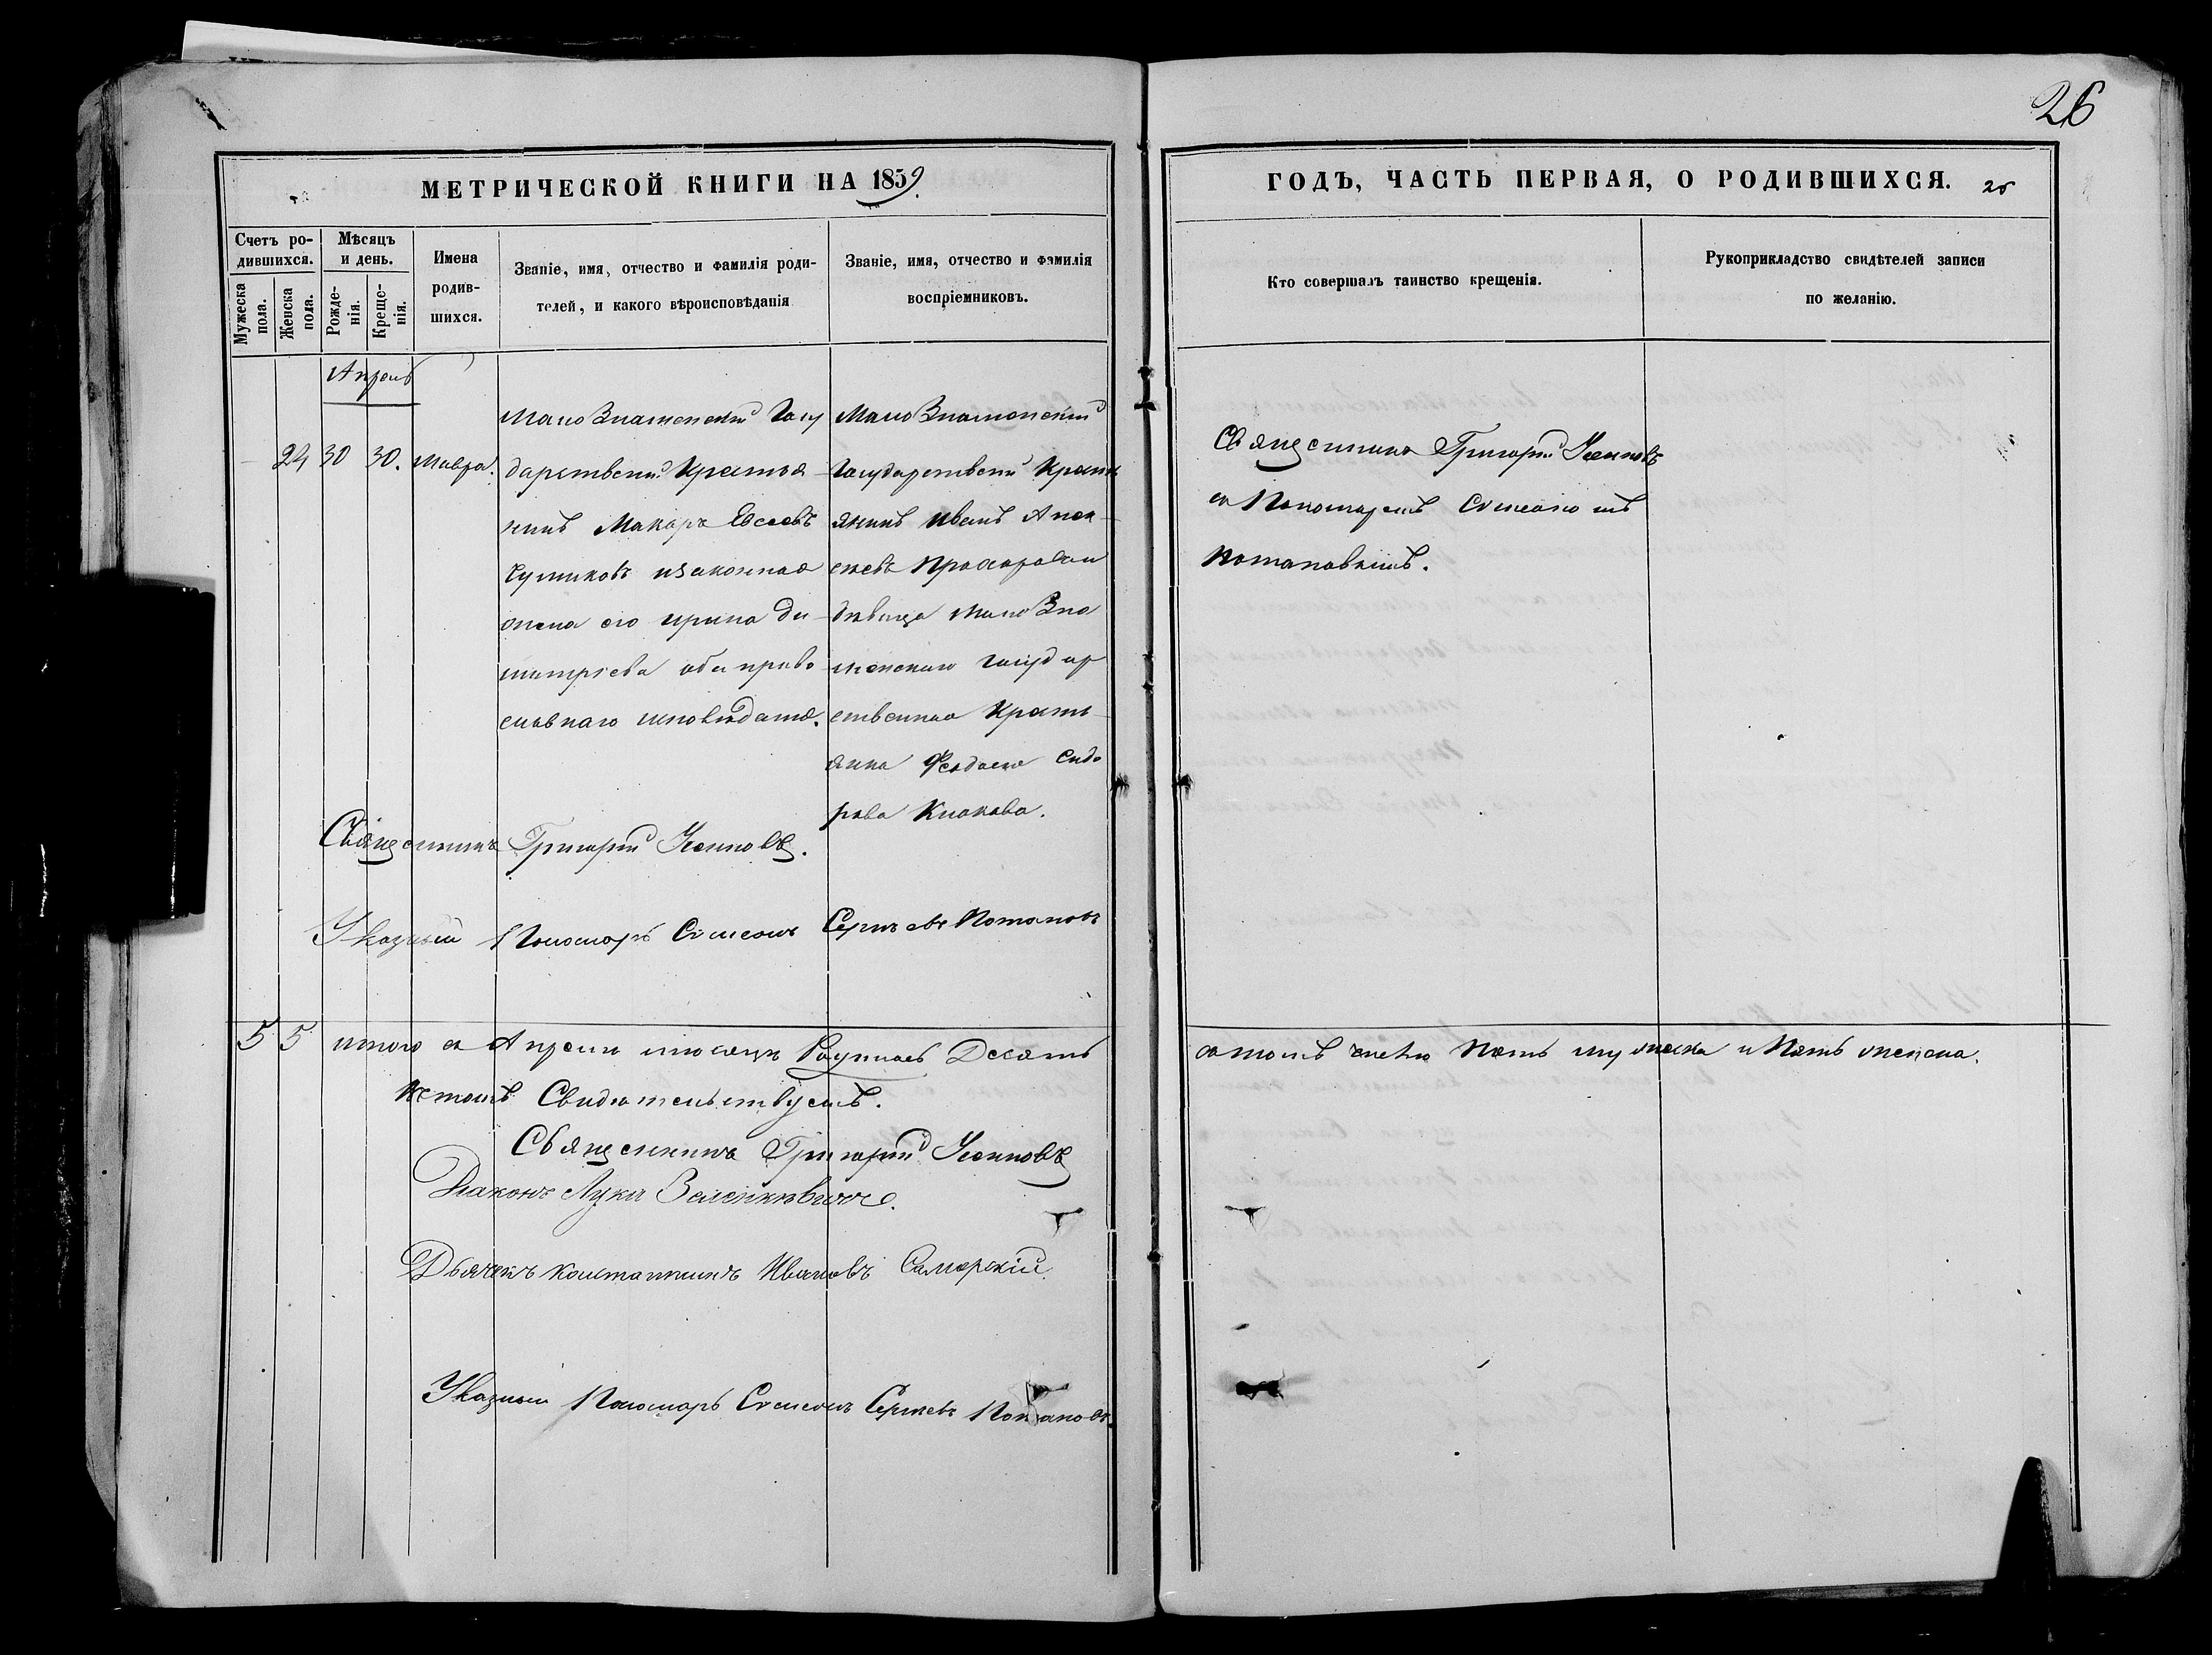 26
МЕТРИЧЕСКОЙ КНИГИ НА 1859.
ГОДЪ, ЧАСТЬ ПЕРВАЯ, О РОДИВШИХСЯ. 26
Счетъ ро-
дившихся.
Мужеска пола.
Женска пола.
Мѣсяцъ
и день.
Рожде-
нія.
Креще-
нія.
Имена
родив-
шихся.
Званіе, имя, отчество и фамилія роди-
телей, и какого вѣроисповѣданія
Званіе, имя, отчество и фамилія
воспріемниковъ.
Кто совершалъ таинство крещенія.
Рукоприкладство свидѣтелей записи
по желанію.
Апрель
24 30 30. Мавра.
Мало Знаменскій Госу
дарствений Крестья
нинъ Макаръ Евсеевъ
изаконная
жена его Ирина Ди-
митріева оба право
славнаго исповѣданія.
Мало Знаменскій
Государствений Крест
янинъ Иванъ Алек
сѣевъ
дѣвица Мало Зна
менскаго Государ
ственнаго Крест
янина Сидо
рова
Священникъ Григорій
съ Пономаремъ Симеономъ
Потаповымъ.
Священникъ Григорій
Указный Пономарь Симеонъ Сергѣевъ Потаповъ
5 5 итого въ Апрели месяцѣ Родилось Десять
въ томъ числѣ Пять мужеска и Пять женска.
В томъ Свидѣтельствуемъ.
Священникъ Григорій
Діаконъ Лука
Дьячекъ Константинъ Ивановъ Самарскій.
Указный Пономарь Симеонъ Сергѣевъ Потаповъ.